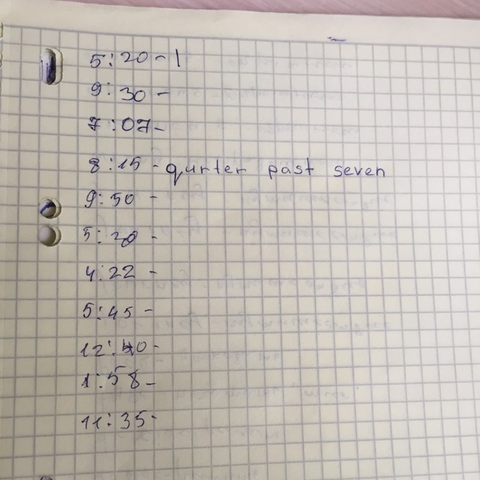 5:20 - |
9:30 -
7:07 -
8:15 - qurter past seven
9:50 -
5:20 -
4:22 -
5:45 -
12:40 -
1:58 -
11:35 -